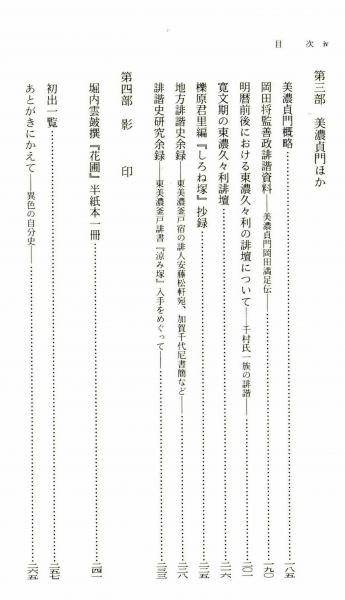 目次 iv
第三部 美濃貞門ほか
美濃貞門概略……一八五
岡田将監善政誹諧資料――美濃貞門岡田満足伝……一九〇
明暦前後における東濃久々利の誹壇について――千村氏一族の誹諧……二〇一
寛文期の東濃久々利誹壇……二一六
櫟原君里編『しろね塚』抄録……二二五
地方誹諧史余録――東美濃釜戸宿の誹人安藤松軒宛、加賀千代尼書簡など――……二二八
誹諧史研究余録――東美濃釜戸誹書『涼み塚』入手をめぐって――……二三三
第四部 影印
堀内雲皷撰『花圃』半紙本一冊……二四一
初出一覧……二五七
あとがきにかえて――異色の自分史――……二六五